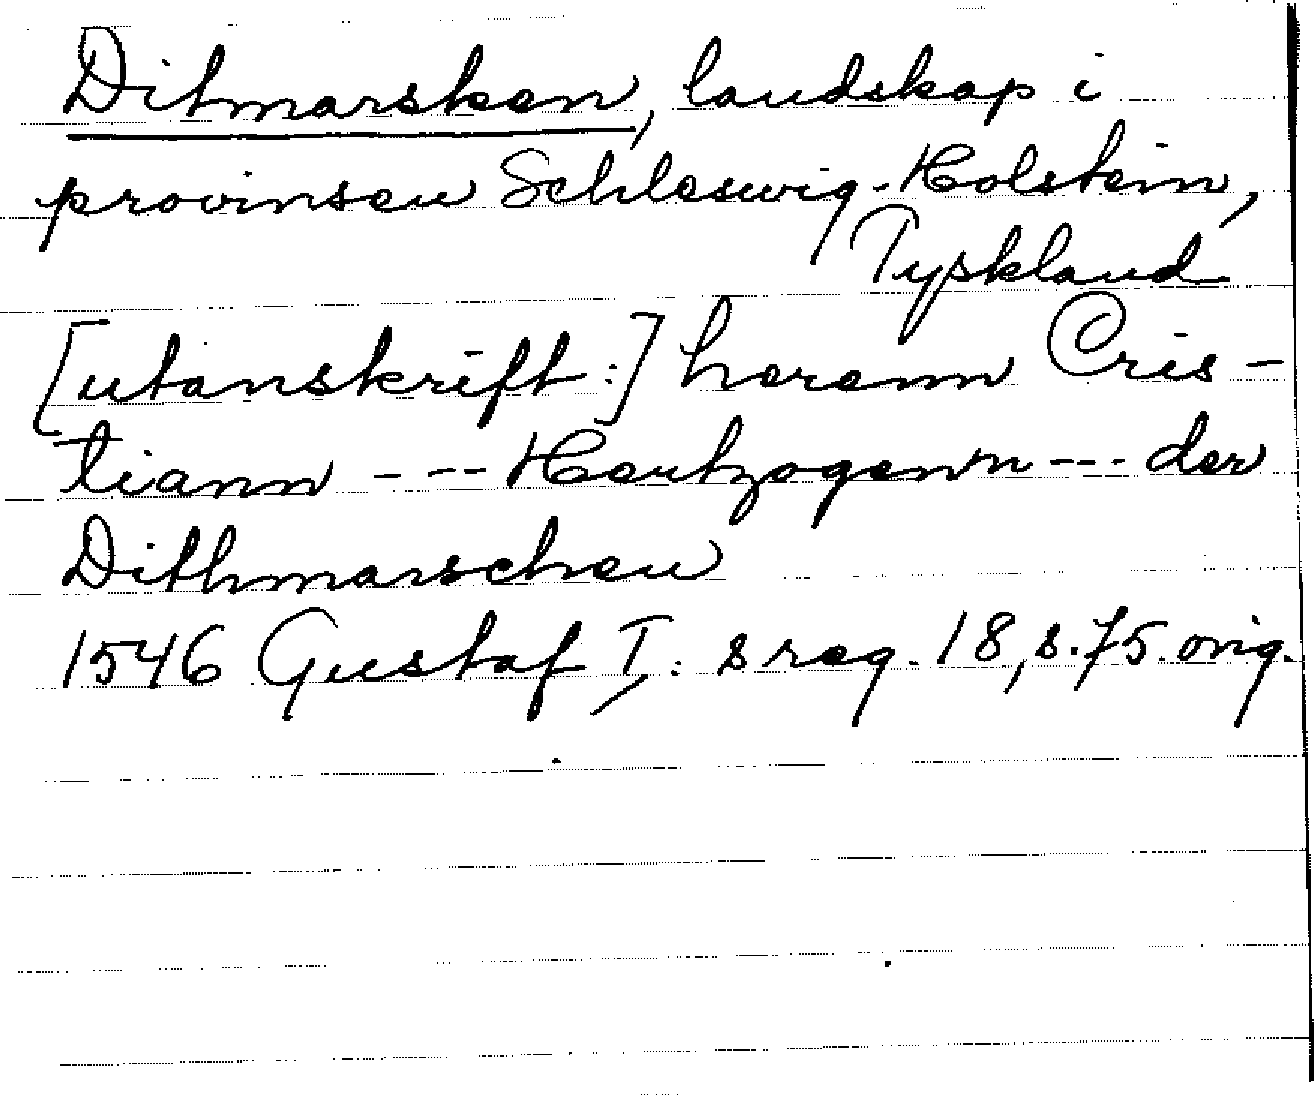 Ditmarsken, landskap i
provinsen Schleswig-Holstein,
Tyskland
[utanskrift:] herenn Cris-
tiann --- Hertzogenn --- der
Dithmarschen
1546 Gustaf I:s reg. 18, s. 75. orig.